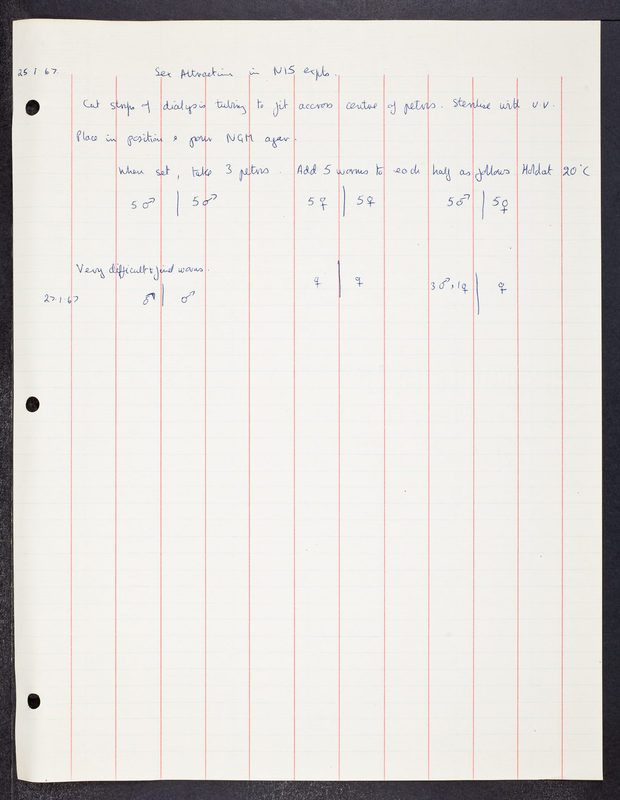 25.1.67. Sex Attraction in N15 expts.
Cut strips of dialysis tubing to fit accross centre of petris. Sterilise with UV.
Place in position & pour NGM agar.
When set, take 3 petris. Add 5 worms to each half as follows Hold at 20°C
5♂ | 5♂ 5♀ | 5♀ 5♂ | 5♀
Very difficult to find worms.
27.1.67 ♂ | ♂ ♀ | ♀ 3♂, 1♀ | ♀